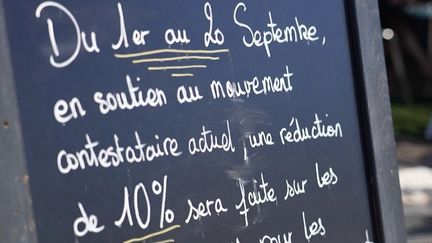 Du 1er au 20 Septembre,
en soutien au mouvement
contestataire actuel, une réduction
de 10% sera faite sur les
pour les